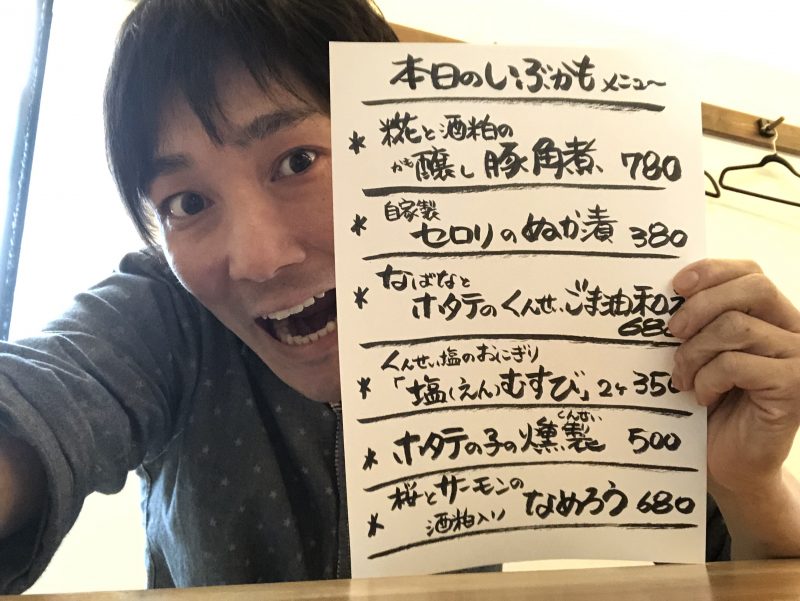 本日のいぶかもメニュー
* 糀と酒粕の
かも醸し 豚角煮、 780
* 自家製
セロリのぬか漬 380
* なばなと
ホタテのくんせいごま油和え
680
くんせい塩のおにぎり
* 「塩(えん)むすび」2ヶ 350
くんせい
* ホタテの子の燻製 500
* 桜とサーモンの
酒粕入り なめろう 680